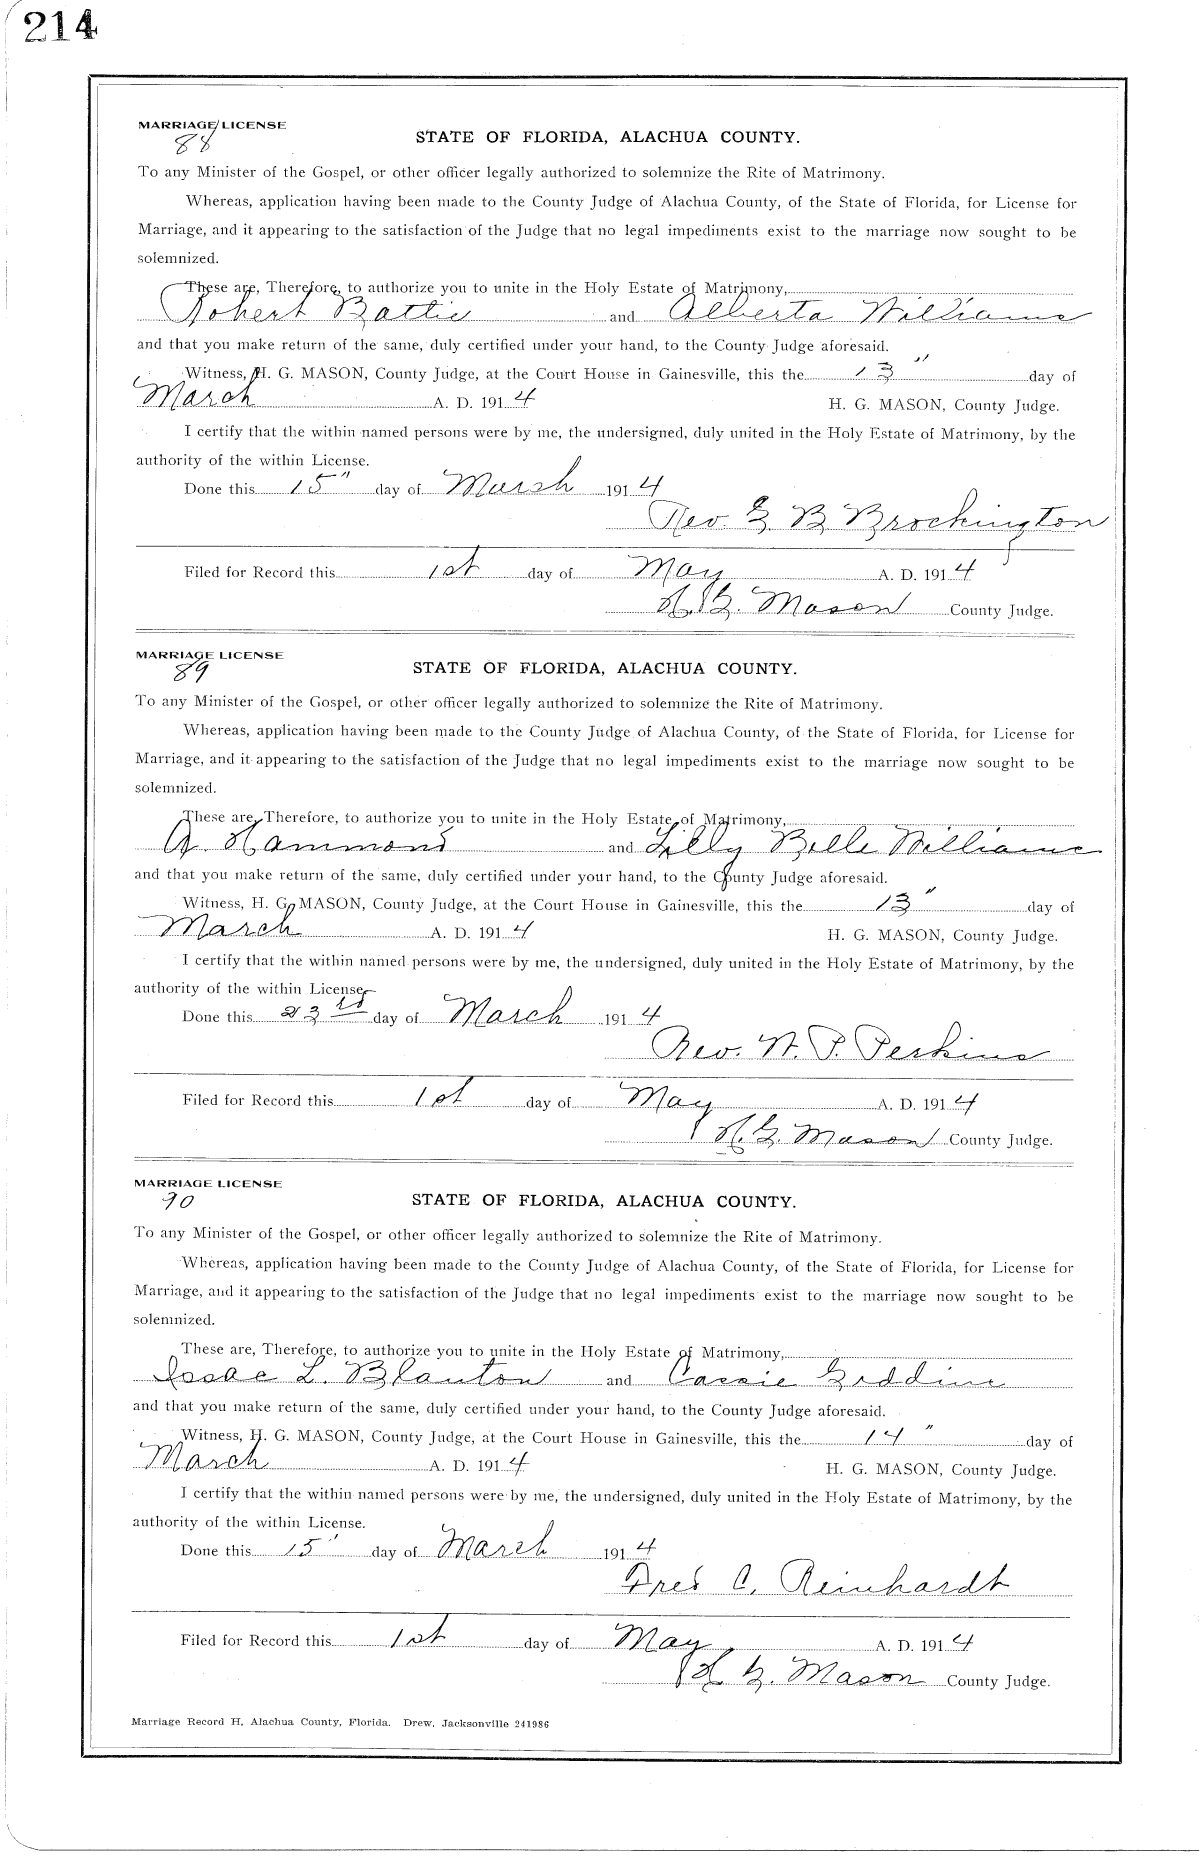 214
MARRIAGE LICENSE
88
STATE OF FLORIDA, ALACHUA COUNTY.
To any Minister of the Gospel, or other officer legally authorized to solemnize the Rite of Matrimony.
Whereas, application having been made to the County Judge of Alachua County, of the State of Florida, for License for
Marriage, and it appearing to the satisfaction of the Judge that no legal impediments exist to the marriage now sought to be
solemnized.
These are, Therefore, to authorize you to unite in the Holy Estate of Matrimony,
Robert Battie and Alberta Williams
and that you make return of the same, duly certified under your hand, to the County Judge aforesaid.
Witness, H. G. MASON, County Judge, at the Court House in Gainesville, this the 13" day of
March A. D. 1914 H. G. MASON, County Judge.
I certify that the within named persons were by me, the undersigned, duly united in the Holy Estate of Matrimony, by the
authority of the within License.
Done this 15" day of March 1914
Rev. G. B Brockington
Filed for Record this 1st day of May A. D. 1914
H. G. Mason County Judge.
MARRIAGE LICENSE
89
STATE OF FLORIDA, ALACHUA COUNTY.
To any Minister of the Gospel, or other officer legally authorized to solemnize the Rite of Matrimony.
Whereas, application having been made to the County Judge of Alachua County, of the State of Florida, for License for
Marriage, and it appearing to the satisfaction of the Judge that no legal impediments exist to the marriage now sought to be
solemnized.
These are, Therefore, to authorize you to unite in the Holy Estate of Matrimony,
A. Hammond and Lilly Belle Williams
and that you make return of the same, duly certified under your hand, to the County Judge aforesaid.
Witness, H. G. MASON, County Judge, at the Court House in Gainesville, this the 13" day of
March A. D. 1914 H. G. MASON, County Judge.
I certify that the within named persons were by me, the undersigned, duly united in the Holy Estate of Matrimony, by the
authority of the within License.
Done this 23rd day of March 1914
Rev. W. P. Perkins
Filed for Record this 1st day of May A. D. 1914
H. G. Mason County Judge.
MARRIAGE LICENSE
90
STATE OF FLORIDA, ALACHUA COUNTY.
To any Minister of the Gospel, or other officer legally authorized to solemnize the Rite of Matrimony.
Whereas, application having been made to the County Judge of Alachua County, of the State of Florida, for License for
Marriage, and it appearing to the satisfaction of the Judge that no legal impediments exist to the marriage now sought to be
solemnized.
These are, Therefore, to authorize you to unite in the Holy Estate of Matrimony,
Issac L. Blanton and Cassie Geddins
and that you make return of the same, duly certified under your hand, to the County Judge aforesaid.
Witness, H. G. MASON, County Judge, at the Court House in Gainesville, this the 14" day of
March A. D. 1914 H. G. MASON, County Judge.
I certify that the within named persons were by me, the undersigned, duly united in the Holy Estate of Matrimony, by the
authority of the within License.
Done this 15" day of March 1914
Fred C. Reinhardt
Filed for Record this 1st day of May A. D. 1914
H. G. Mason County Judge.
Marriage Record H, Alachua County, Florida. Drew, Jacksonville 241986